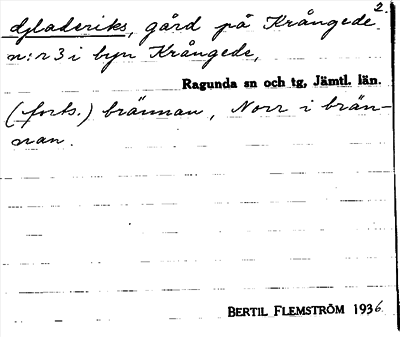 2.
djladeriks, gård på Krångede
n:r 3 i byn Krångede,
Ragunda sn och tg, Jämtl. län.
(forts.) brännan, Norr i brän-
nan.
BERTIL FLEMSTRÖM 1936